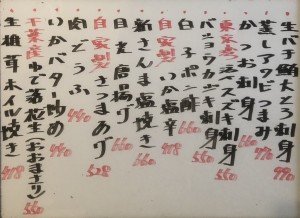 生バチ鮪大とろ刺身 990
蒸しアワビつまみ 770
かつお刺身 660
東京湾 活〆スズキ刺身 660
バショウカジキ刺身 550
白子ポン酢 660
自家製 いか塩辛 418
新さんま塩焼き 660
目光唐揚げ 660
自家製 さつまあげ 528
肉どうふ 440
いかバター炒め 440
千葉産 ゆで落花生(おおまさり) 550
生椎茸ホイル焼き 418